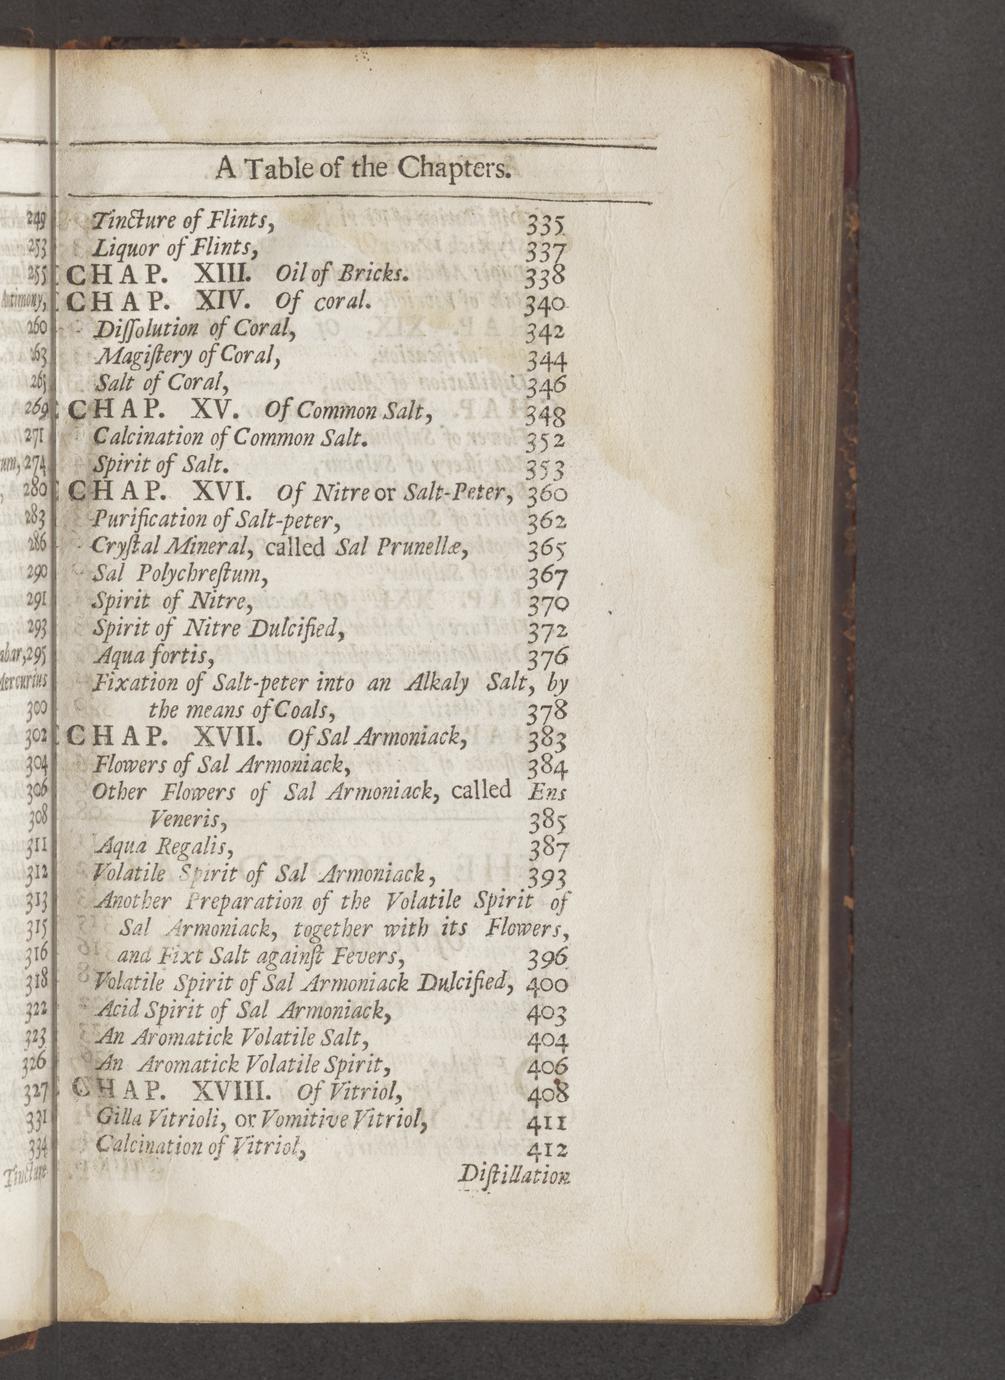 A Table of the Chapters.
Tincture of Flints, 335
Liquor of Flints, 337
CHAP. XIII. Oil of Bricks. 338
CHAP. XIV. Of coral. 340
Diſſolution of Coral, 342
Magiſtery of Coral, 344
Salt of Coral, 346
CHAP. XV. Of Common Salt, 348
Calcination of Common Salt. 352
Spirit of Salt. 353
CHAP. XVI. Of Nitre or Salt-Peter, 360
Purification of Salt-peter, 362
Cryſtal Mineral, called Sal Prunellæ, 365
Sal Polychreſtum, 367
Spirit of Nitre, 370
Spirit of Nitre Dulcified, 372
Aqua fortis, 376
Fixation of Salt-peter into an Alkaly Salt, by
the means of Coals, 378
CHAP. XVII. Of Sal Armoniack, 383
Flowers of Sal Armoniack, 384
Other Flowers of Sal Armoniack, called Ens
Veneris, 385
Aqua Regalis, 387
Volatile Spirit of Sal Armoniack, 393
Another Preparation of the Volatile Spirit of
Sal Armoniack, together with its Flowers,
and Fixt Salt againſt Fevers, 396
Volatile Spirit of Sal Armoniack Dulcified, 400
Acid Spirit of Sal Armoniack, 403
An Aromatick Volatile Salt, 404
An Aromatick Volatile Spirit, 406
CHAP. XVIII. Of Vitriol, 408
Gilla Vitrioli, or Vomitive Vitriol, 411
Calcination of Vitriol, 412
Diſtillation
249
253
255
Antimony,
260
263
265
269
271
274
280
283
286
290
291
293
295
Mercurius
300
302
304
306
308
311
312
313
315
316
318
322
323
326
327
331
334
Tincture